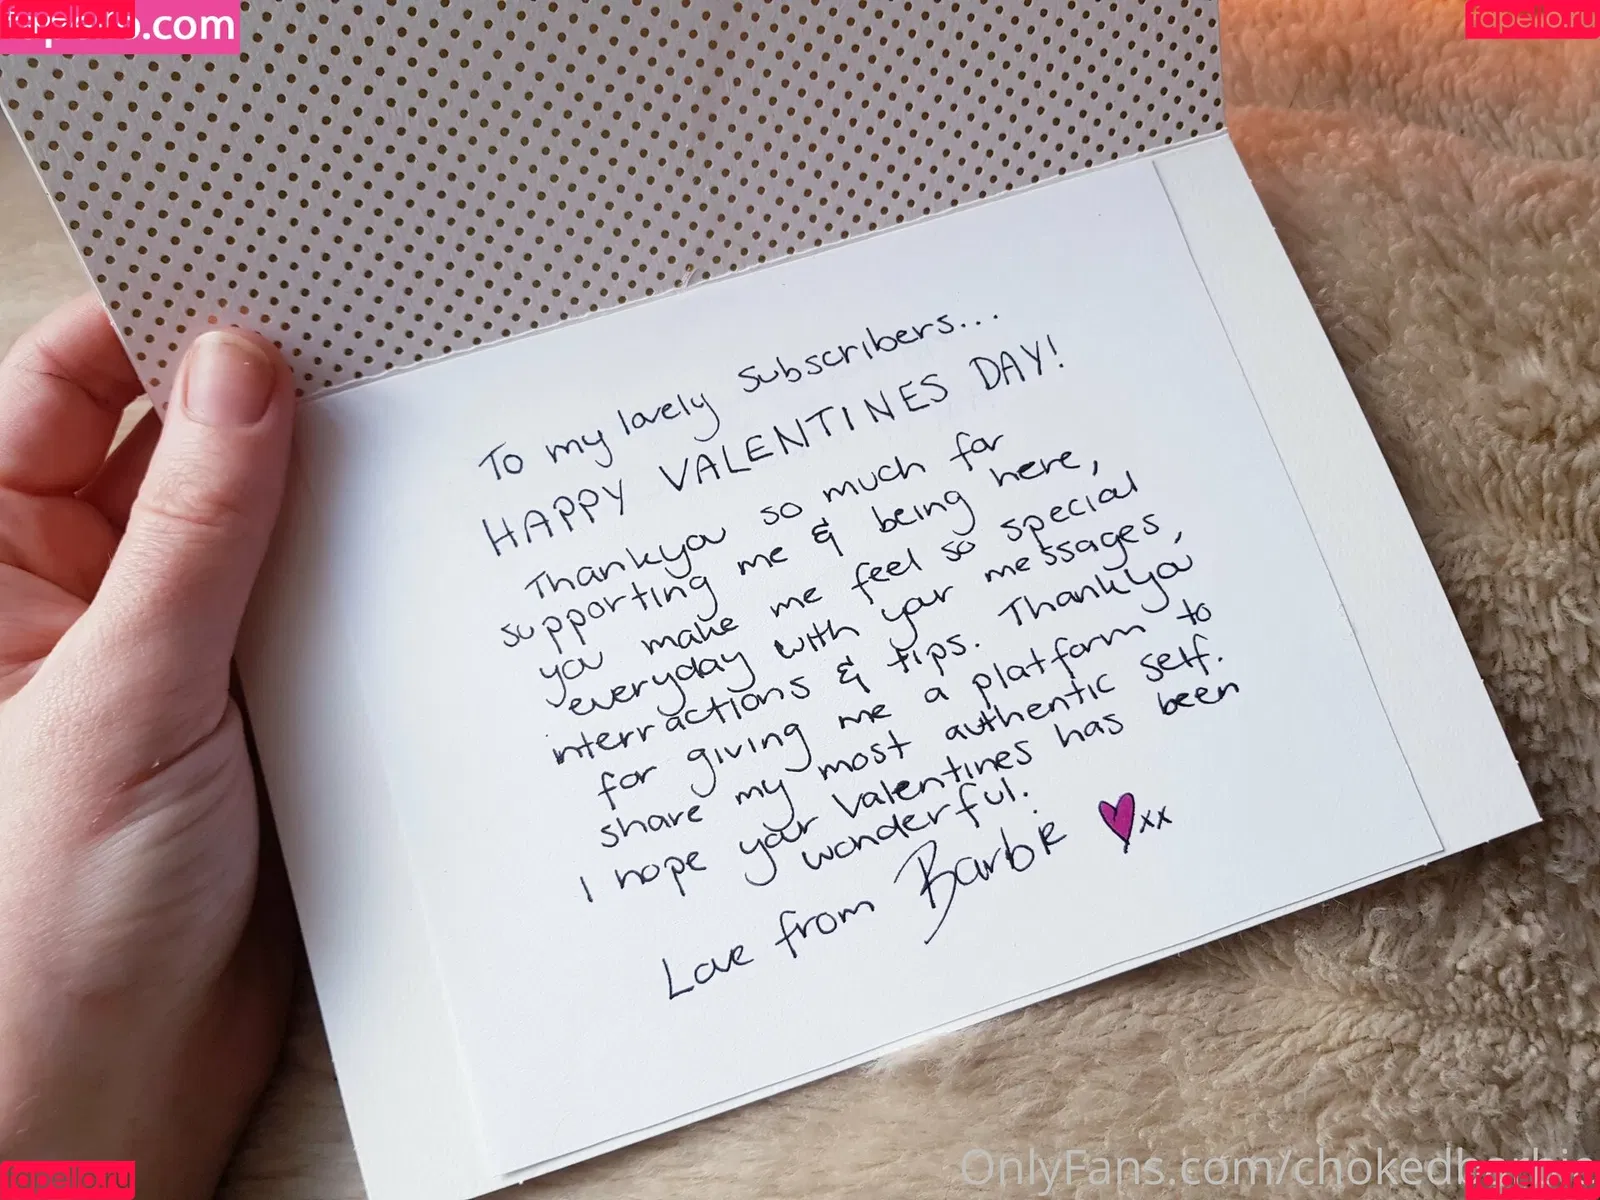 fapello.ru
.com
fapello.ru
To my lovely subscribers...
HAPPY VALENTINES DAY!
Thankyou so much for
supporting me & being here,
you make me feel so special
everyday with your messages,
interractions & tips. Thankyou
for giving me a platform to
share my most authentic self.
I hope your valentines has been
wonderful.
Love from Barbie xx
fapello.ru
fapello.ru